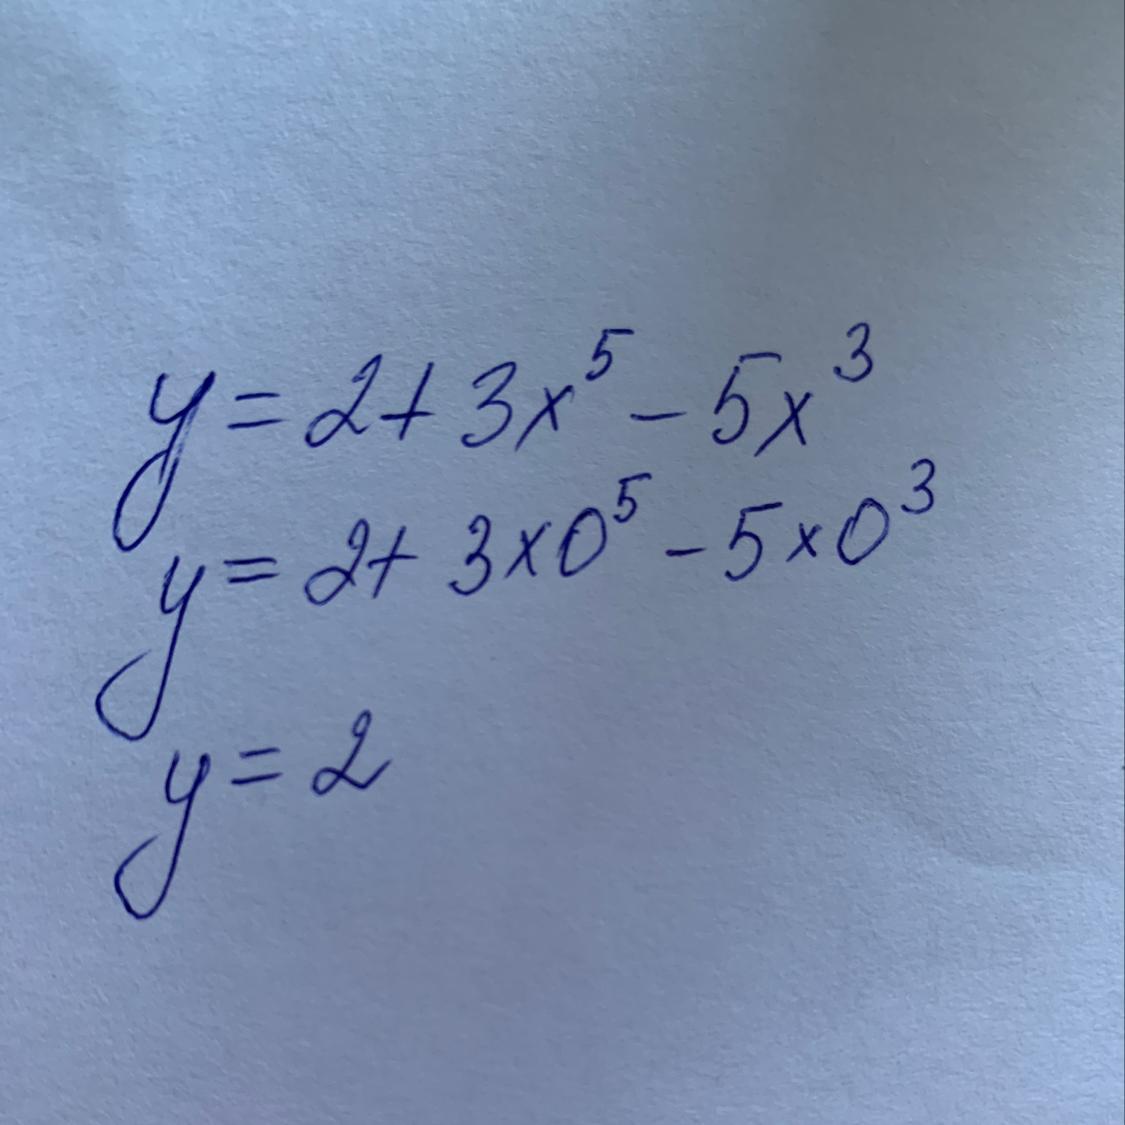 y = 2 + 3x⁵ - 5x³
y = 2 + 3 × 0⁵ - 5 × 0³
y = 2